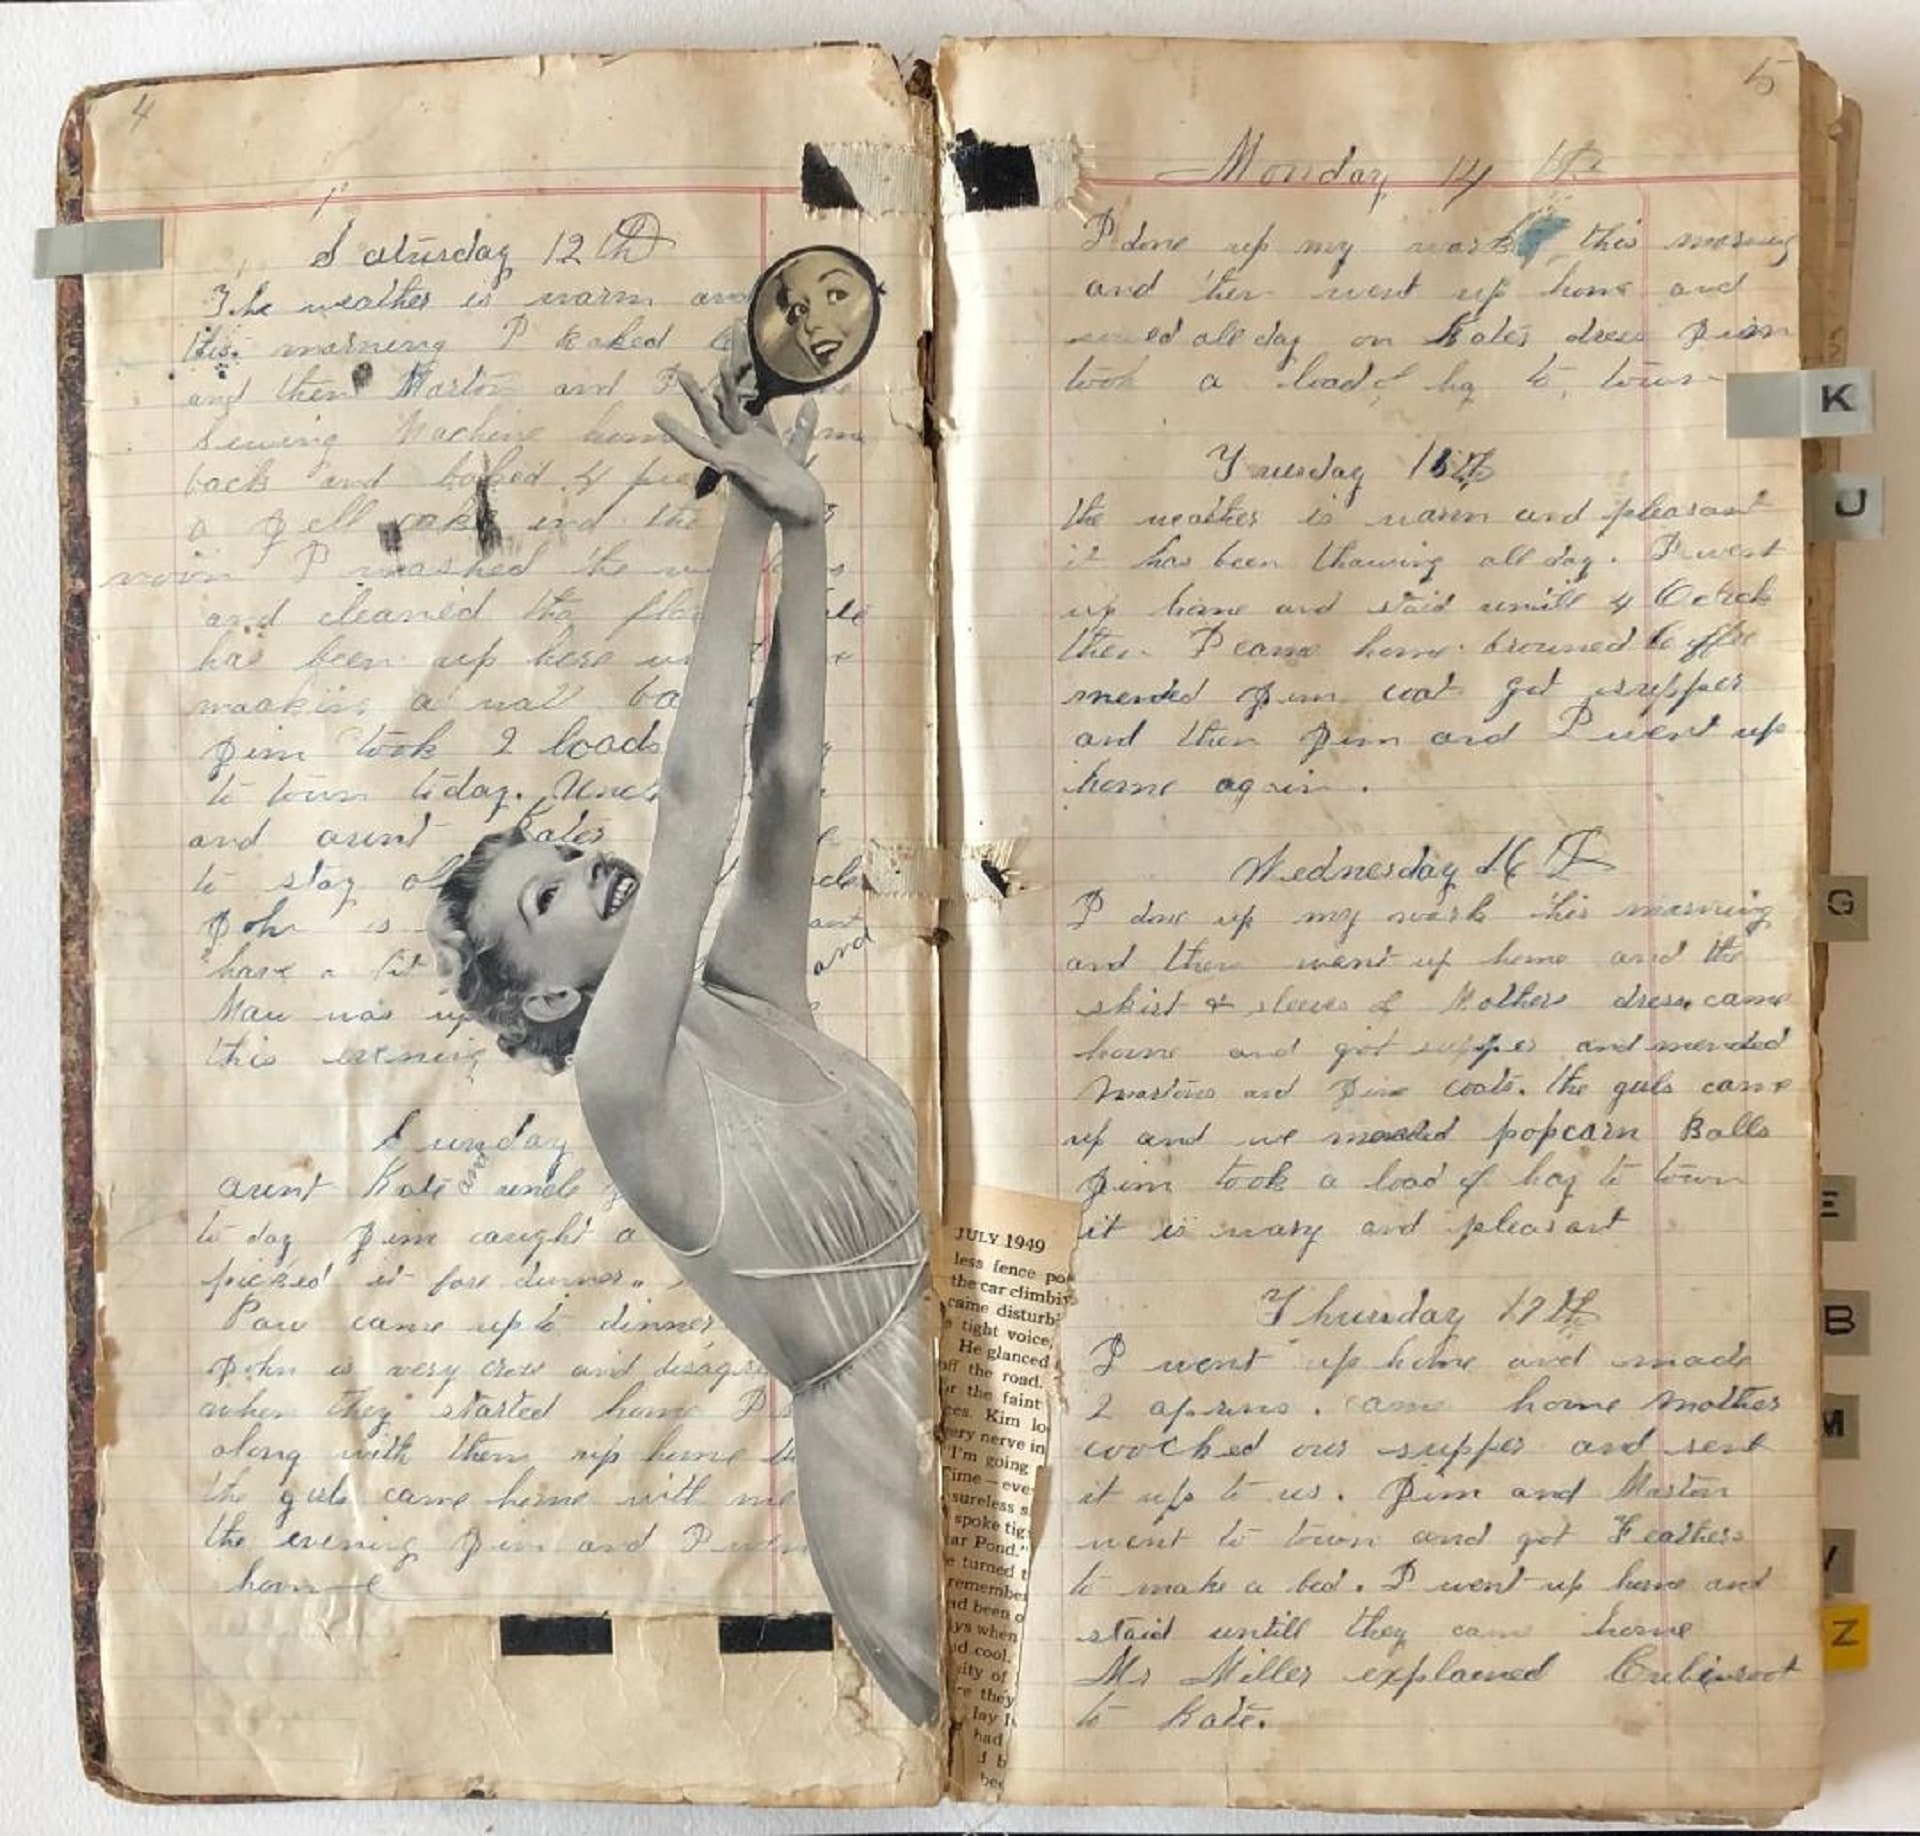 4
Saturday 12th
The weather is warm and
this morning I baked
and then Marton and I
Sewing Machine home
back and baked 4 pies
a Jell cake and the
I mashed the
and cleaned the
has been up here
making a
Jim took 2 loads
to town today. Uncle
and aunt Kates
to stay
John is
have a fit
Maw was up
this evening
and
Sunday
aunt Kate and uncle
to day Jim caught a
picked it for dinner.
Paw came up to dinner
John is very cross and
when they started home I
along with them up home
the girls came home with me
the evening Jim and I
home
JULY 1949
less fence
the car climbi
came disturb
tight voice,
He glanced
off the road.
the faint
Kim lo
nerve in
"I'm going
eve
sureless s
spoke tig
Pond."
turned t
remember
been
when
cool.
of
they
lay
had
5
Monday 14th
I done up my work this morning
and then went up home and
sewed all day on Kates dress Jim
took a load of hay to town
Tuesday 15th
the weather is warm and pleasant
it has been thawing all day. I went
up home and staid untill 4 Oclock
then I came home browned Coffee
mended Jim coat got supper
and then Jim and I went up
home again.
Wednesday 16th
I done up my work this morning
and then went up home and the
skirt & sleeves of Mothers dress. came
home and got supper and mended
Martons and Jim coats. the girls came
up and we popcorn Balls
Jim took a load of hay to town
it is and pleasant
Thursday 17th
I went up home and made
2 aprins. came home Mother
coocked our supper and sent
it up to us. Jim and Marton
went to town and got Feathers
to make a bed. I went up home and
staid untill they came home
Mr Miller explained
to Kate.
K
J
G
E
B
M
Z